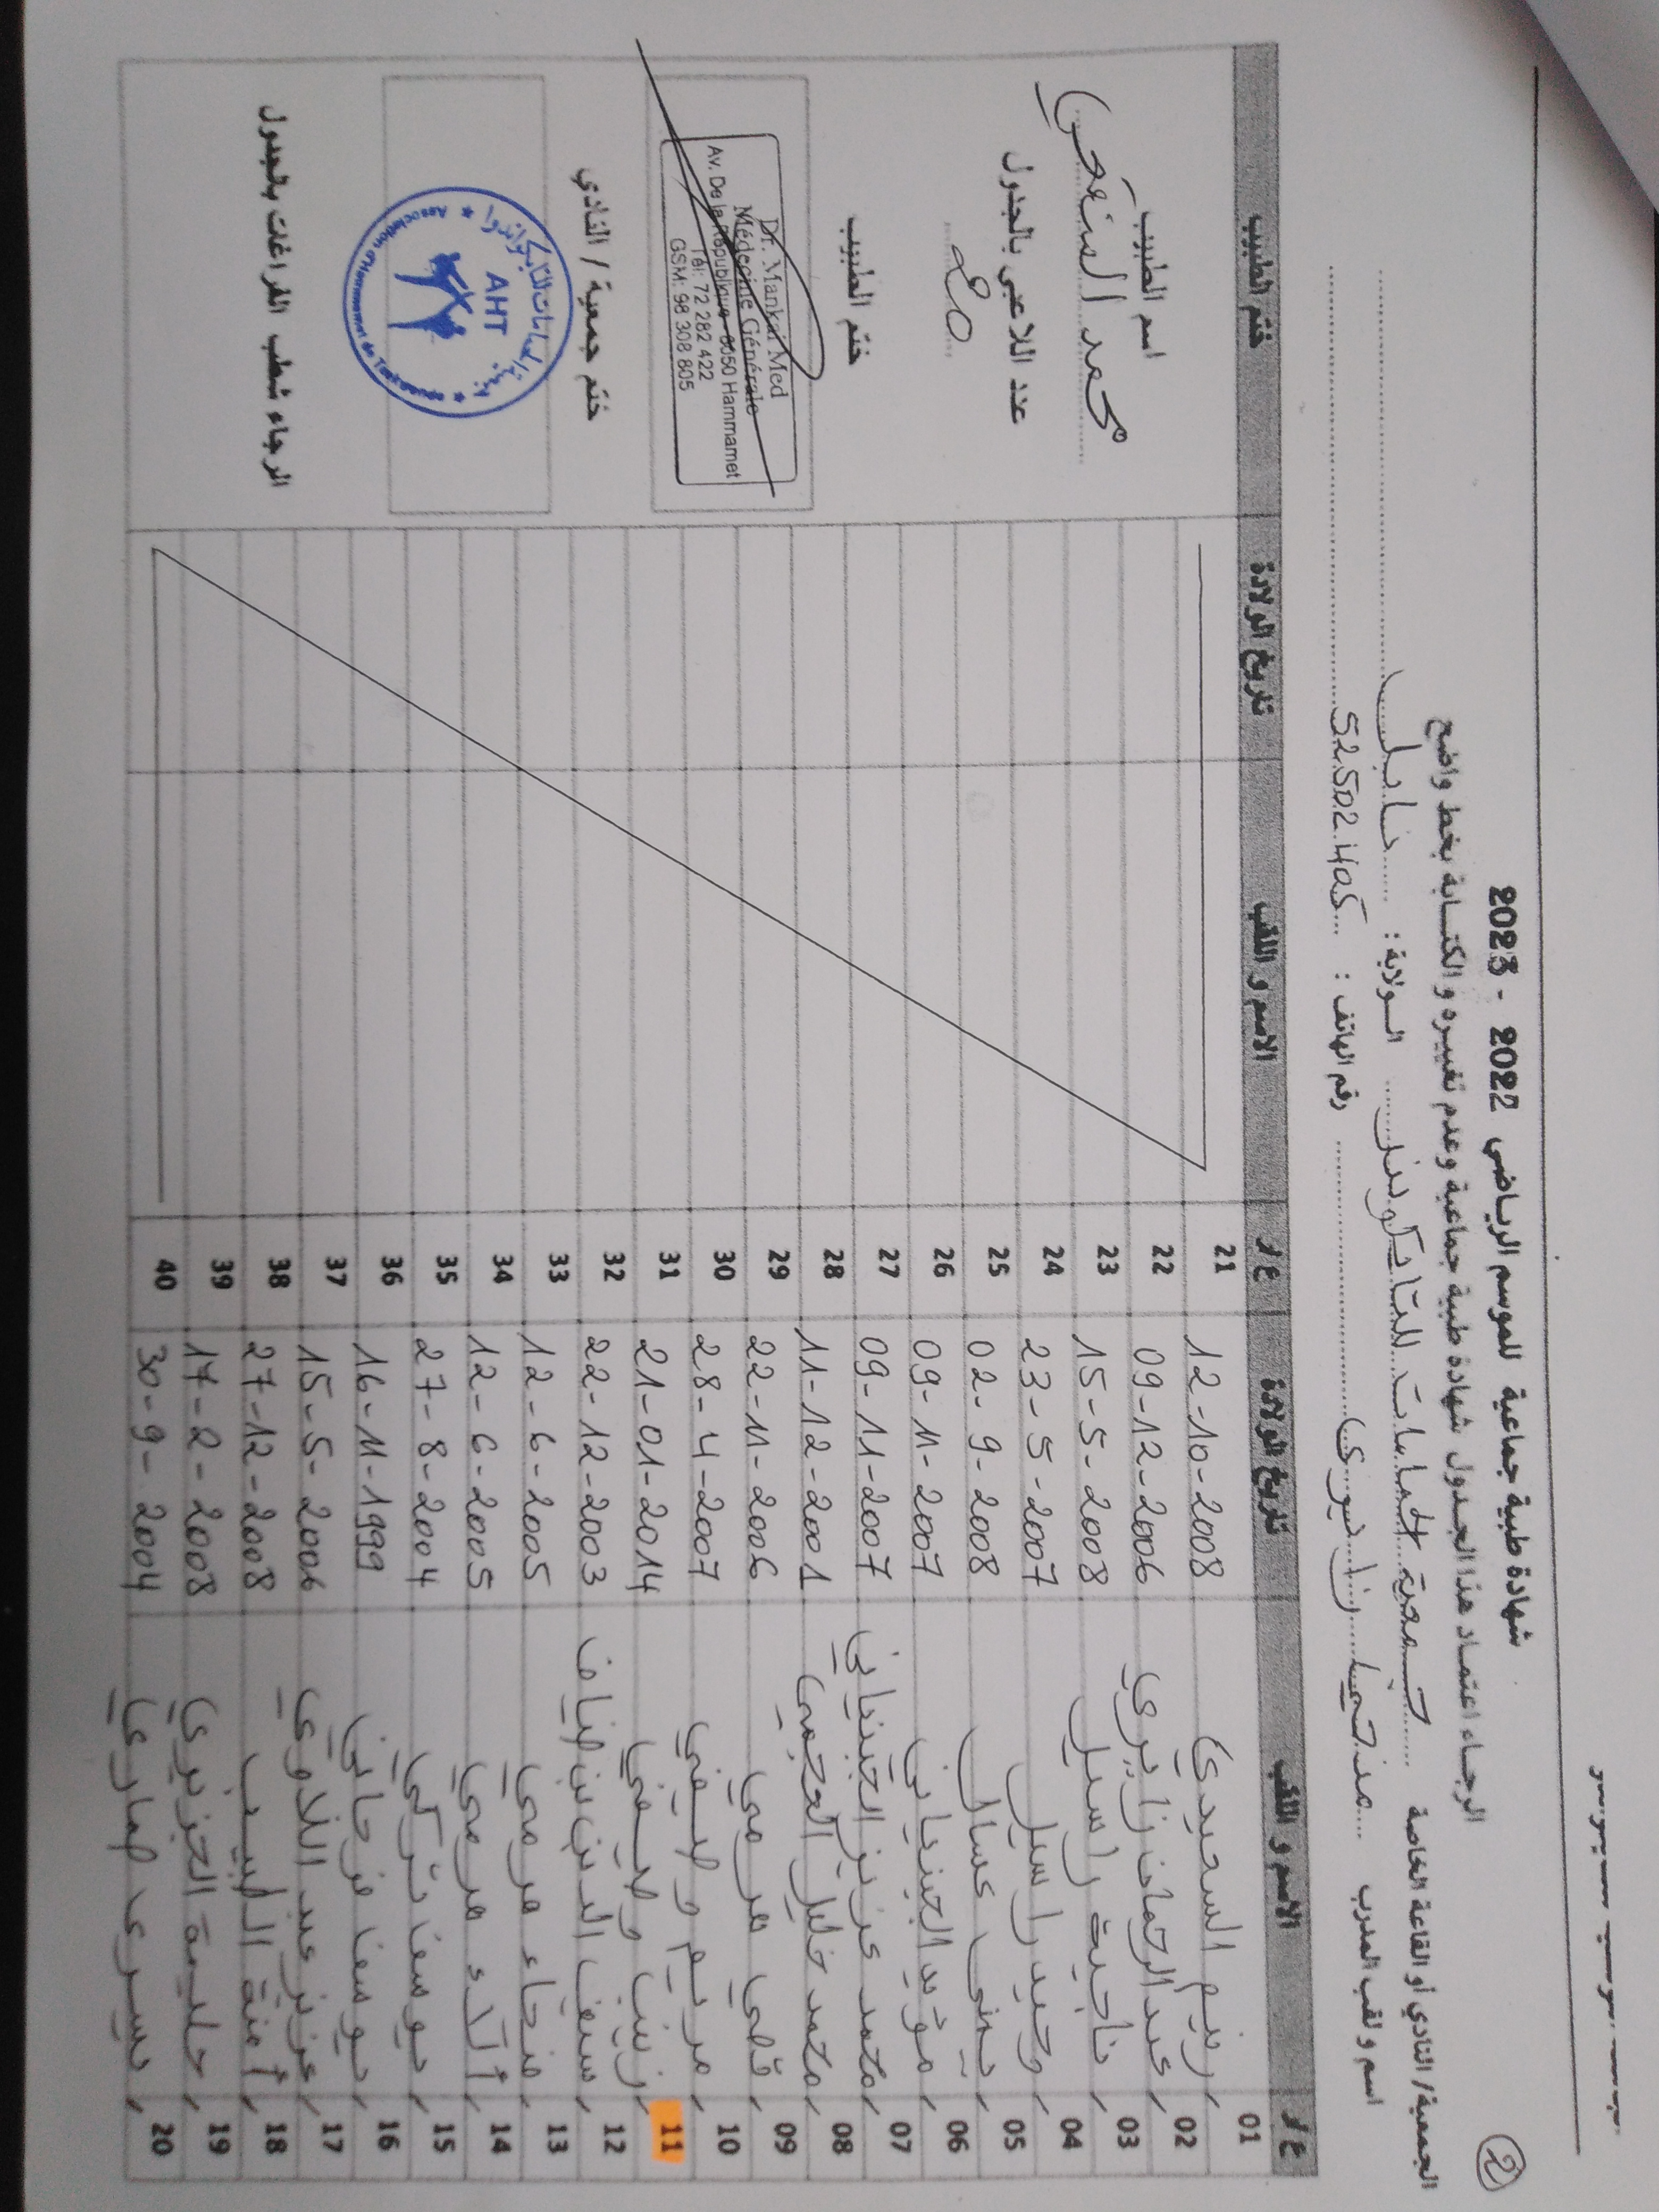 2
شهادة طبية جماعية للموسم الرياضي 2022 - 2023
الرجاء اعتماد هذا الجدول شهادة طبية جماعية وعدم تغييره و الكتابة بخط واضح
الجمعية/ النادي أو القاعة الخاصة جمعية الحمامات للتايكوندو الولاية : نابل
اسم و لقب المدرب رقم الهاتف : 52.502.405
ع / ر الاسم و اللقب تاريخ الولادة ع / ر الاسم و اللقب تاريخ الولادة ختم الطبيب
01 ريم السعيدي 12-10-2008 21
02 عبد الرحمان زايري 09-12-2006 22
03 راسيل 15-5-2008 23
04 وحيد راسيل 23-5-2007 24
05 يمنى عسال 02-9-2008 25
06 مؤيد الجنداني 09-11-2007 26
07 محمد عزيز الجنداني 09-11-2007 27
08 محمد خليل العجمي 11-12-2001 28
09 قصي هرمي 22-11-2006 29
10 مريم وصيفي 28-4-2007 30
11 زينب وصيفي 21-01-2014 31
12 سيف الدين بن ضياف 22-12-2003 32
13 هرمي 12-6-2005 33
14 آلاء هرمي 12-6-2005 34
15 يوسف تركي 27-8-2004 35
16 يوسف فرحاني 16-11-1999 36
17 عزيز عبد اللاوي 15-5-2006 37
18 أمنة الطبيب 27-12-2008 38
19 حليمة الجزيري 17-2-2008 39
20 يسرى عماري 30-9-2004 40
اسم الطبيب
محمد المنقعي
عدد اللاعبي بالجدول
20
ختم الطبيب
Dr. Mankai Med
Médecine Générale
Av. De la République - 8050 Hammamet
Tél: 72 282 422
GSM: 98 308 805
ختم جمعية / النادي
جمعية الحمامات للتايكواندوا
AHT
Association d'Hammamet de
الرجاء شطب الفراغات بالجدول